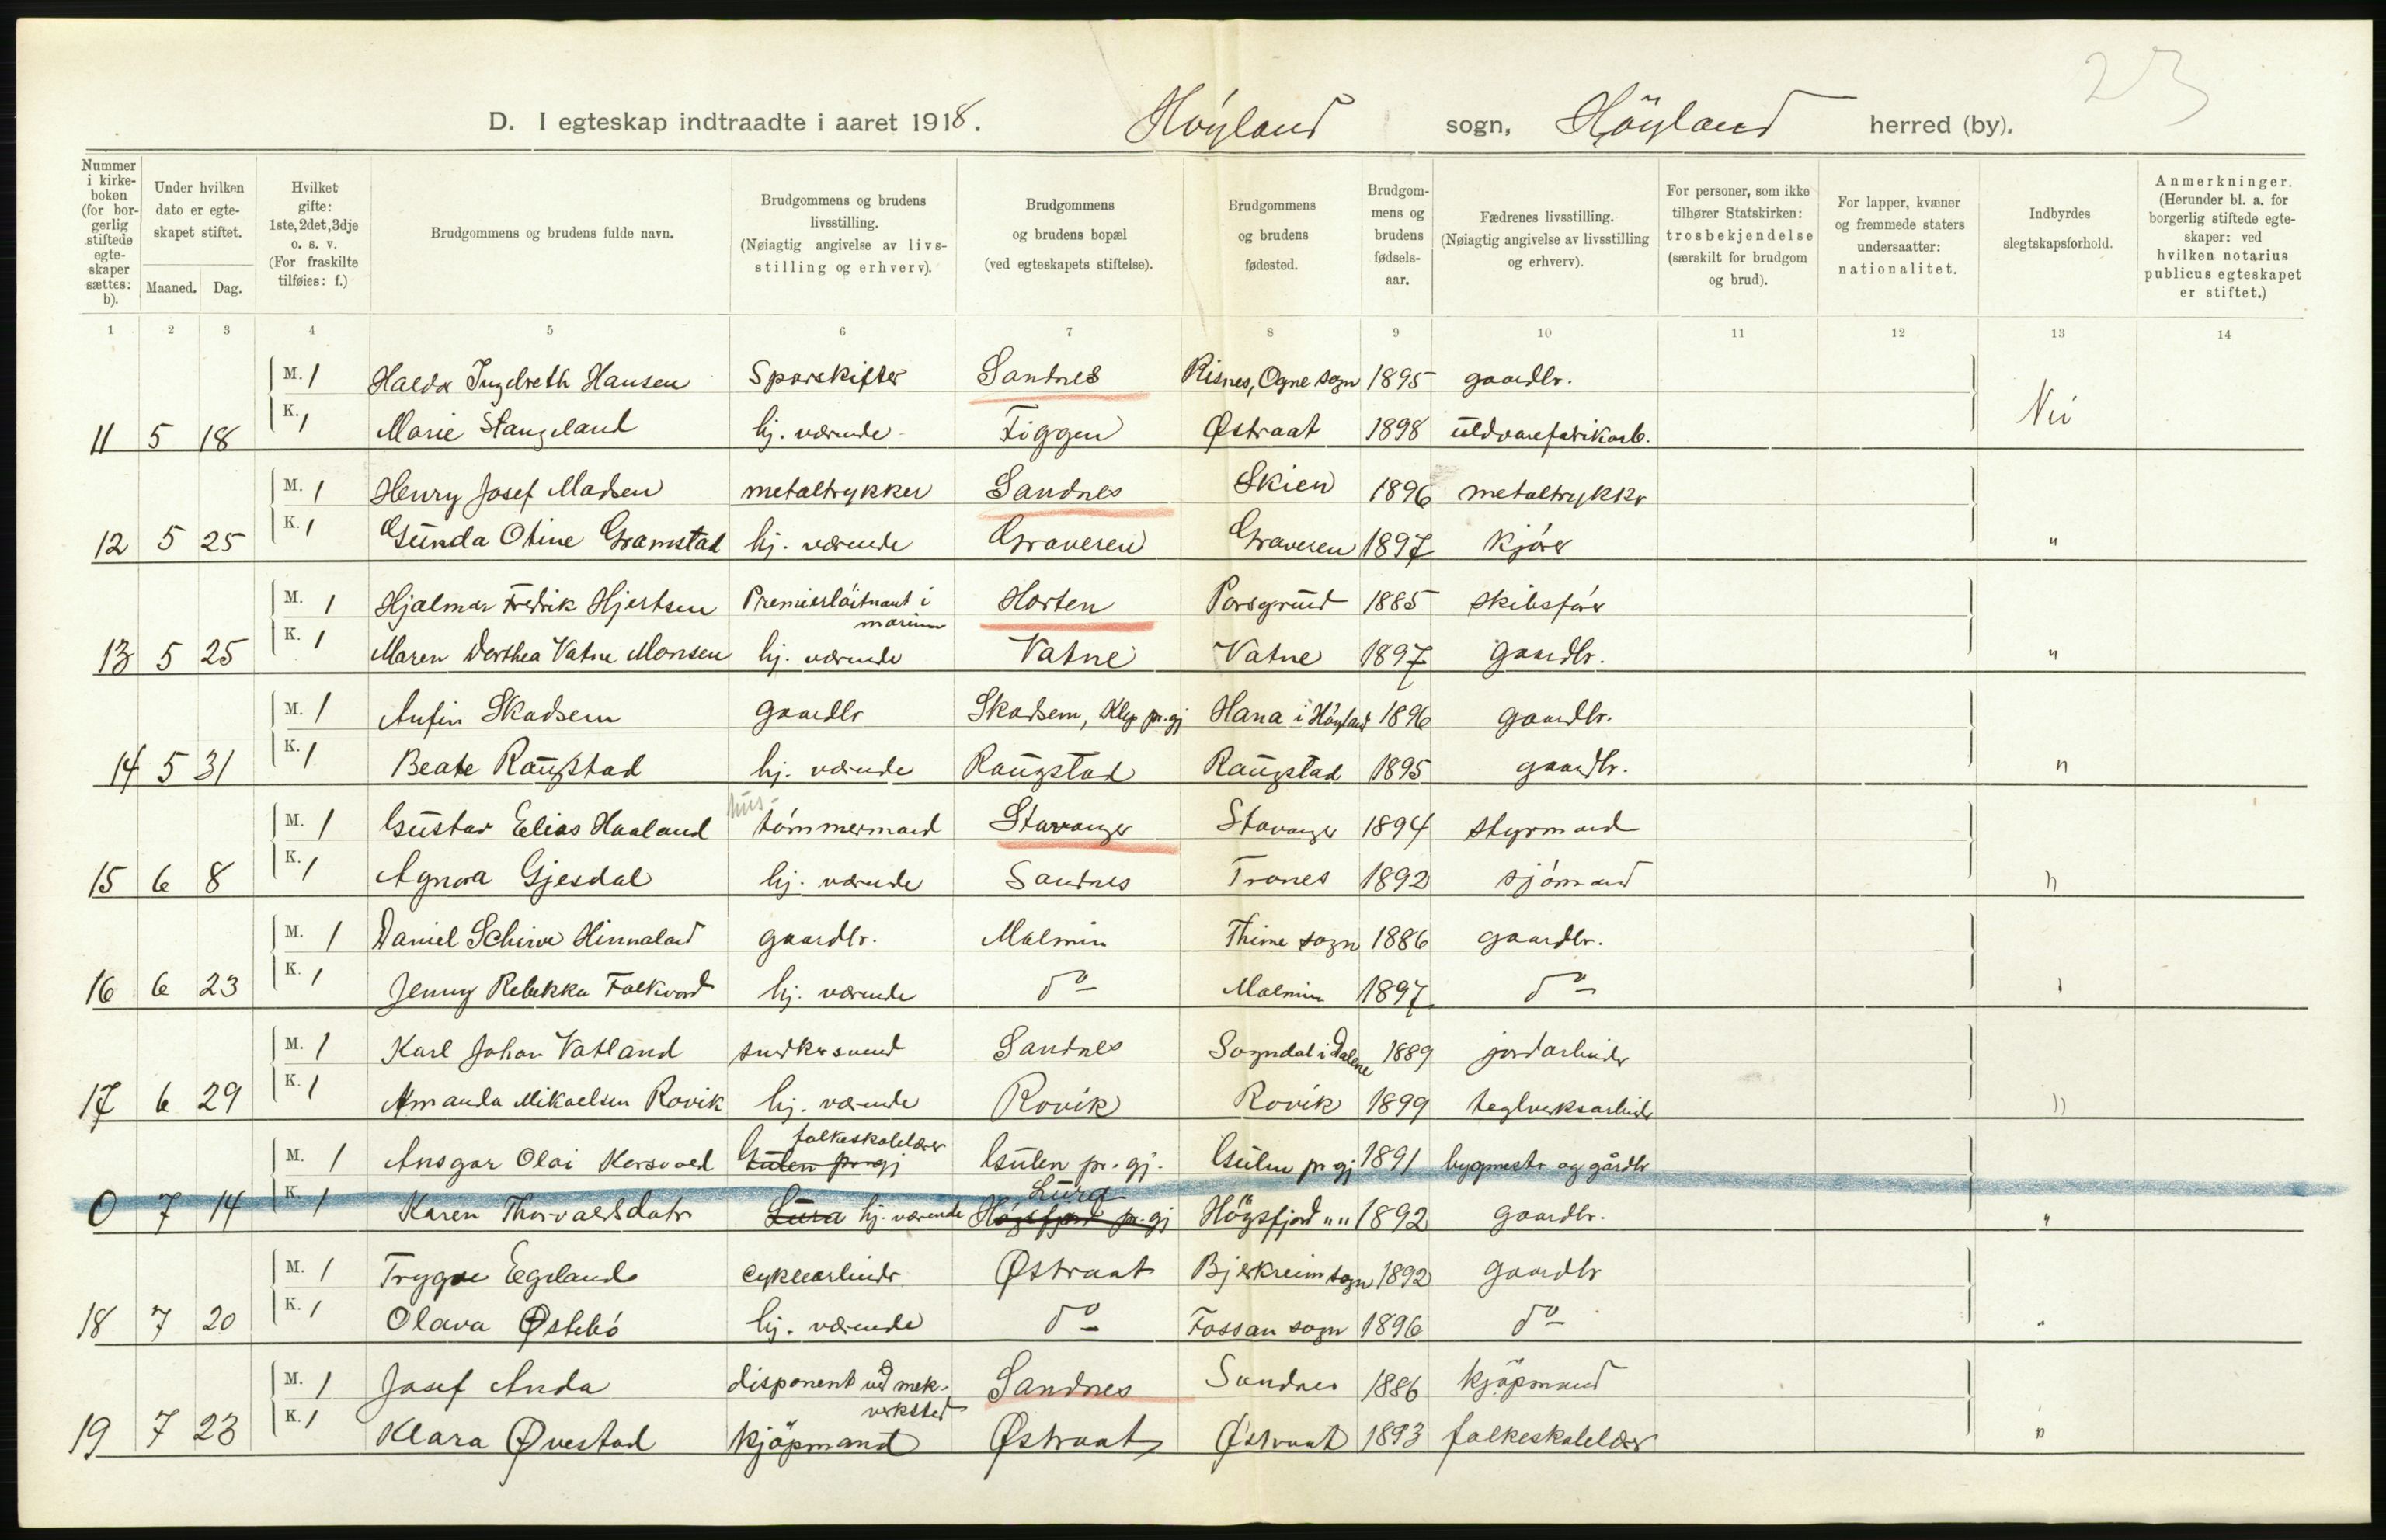 23
D. I egteskap indtraadte i aaret 1918. Höyland sogn, Höyland herred (by).
Nummer i kirke-boken (for bor-gerlig stiftede egte-skaper sættes: b).
Under hvilken dato er egte-skapet stiftet.
Maaned. Dag.
Hvilket gifte: 1ste, 2det, 3dje o. s. v. (For fraskilte tilføies: f.)
Brudgommens og brudens fulde navn.
Brudgommens og brudens livsstilling. (Nøiagtig angivelse av livs-stilling og erhverv).
Brudgommens og brudens bopæl (ved egteskapets stiftelse).
Brudgommens og brudens fødested.
Brudgom-mens og brudens fødsels-aar.
Fædrenes livsstilling. (Nøiagtig angivelse av livsstilling og erhverv).
For personer, som ikke tilhører Statskirken: trosbekjendelse (særskilt for brudgom og brud).
For lapper, kvæner og fremmede staters undersaatter: nationalitet.
Indbyrdes slegtskapsforhold.
Anmerkninger. (Herunder bl. a. for borgerlig stiftede egte-skaper: ved hvilken notarius publicus egteskapet er stiftet.)
1 2 3 4 5 6 7 8 9 10 11 12 13 14
M. 1 Hansen Sporskifter Sandnes Risnes, Ogne sogn 1895 gaardbr.
11 5 18 K. 1 Marie Stangeland hj. værende Figgen Østraat 1898 uldvarefabrikarb. Nei
M. 1 Henry Josef Madsen metaltrykker Sandnes Skien 1896 metaltrykkr
12 5 25 K. 1 Gunda Otine Gramstad hj. værende Graveren Graveren 1897 kjörer "
M. 1 Hjalmar Fredrik Hjertsen Premierlöitnant i marinen Horten Porsgrund 1885 skibsförer
13 5 25 K. 1 Maren Dorthea Vatne Monsen hj. værende Vatne Vatne 1897 gaardbr. "
M. 1 Anfin Skadsem gaardbr Skadsem, Klep pr.gj Hana i Höyland 1896 gaardbr.
14 5 31 K. 1 Beate Raugstad hj. værende Raugstad Raugstad 1895 gaardbr. "
M. 1 Gustav Elias Haaland hus-tömmermand Stavanger Stavanger 1894 styrmand
15 6 8 K. 1 Agnora Gjesdal hj. værende Sandnes Trones 1892 sjömand "
M. 1 Daniel Hinnaland gaardbr. Malmin Thime sogn 1886 gaardbr.
16 6 23 K. 1 Jenny Rebekka Folkvord hj. værende do Malmin 1897 do "
M. 1 Karl Johan Vatland snedkersvend Sandnes Sogndal i Dalene 1889 jordarbeider
17 6 29 K. 1 Amanda Mikaelsen Rovik hj. værende Rovik Rovik 1899 teglverksarbeider "
M. 1 Ansgar Olai Gulen pr.gj folkeskolelærer Gulen pr.gj. Gulen pr gj 1891 bygmestr og gårdbr
0 7 14 K. 1 Karen Thorvaldsdatr Lura hj. værende Högsfjord pr.gj Lura Högsfjord "" 1892 gaardbr. "
M. 1 Trygve Egeland cyklearbeidr Østraat Bjerkreim sogn 1892 gaardbr
18 7 20 K. 1 Olava Østebö hj. værende do Fossan sogn 1896 do "
M. 1 Josef Anda disponent ved mek. verksted Sandnes Sandnes 1886 kjöpmand
19 7 23 K. 1 Klara Øvestad kjöpmand Østraat Østraat 1893 folkeskolelærer "